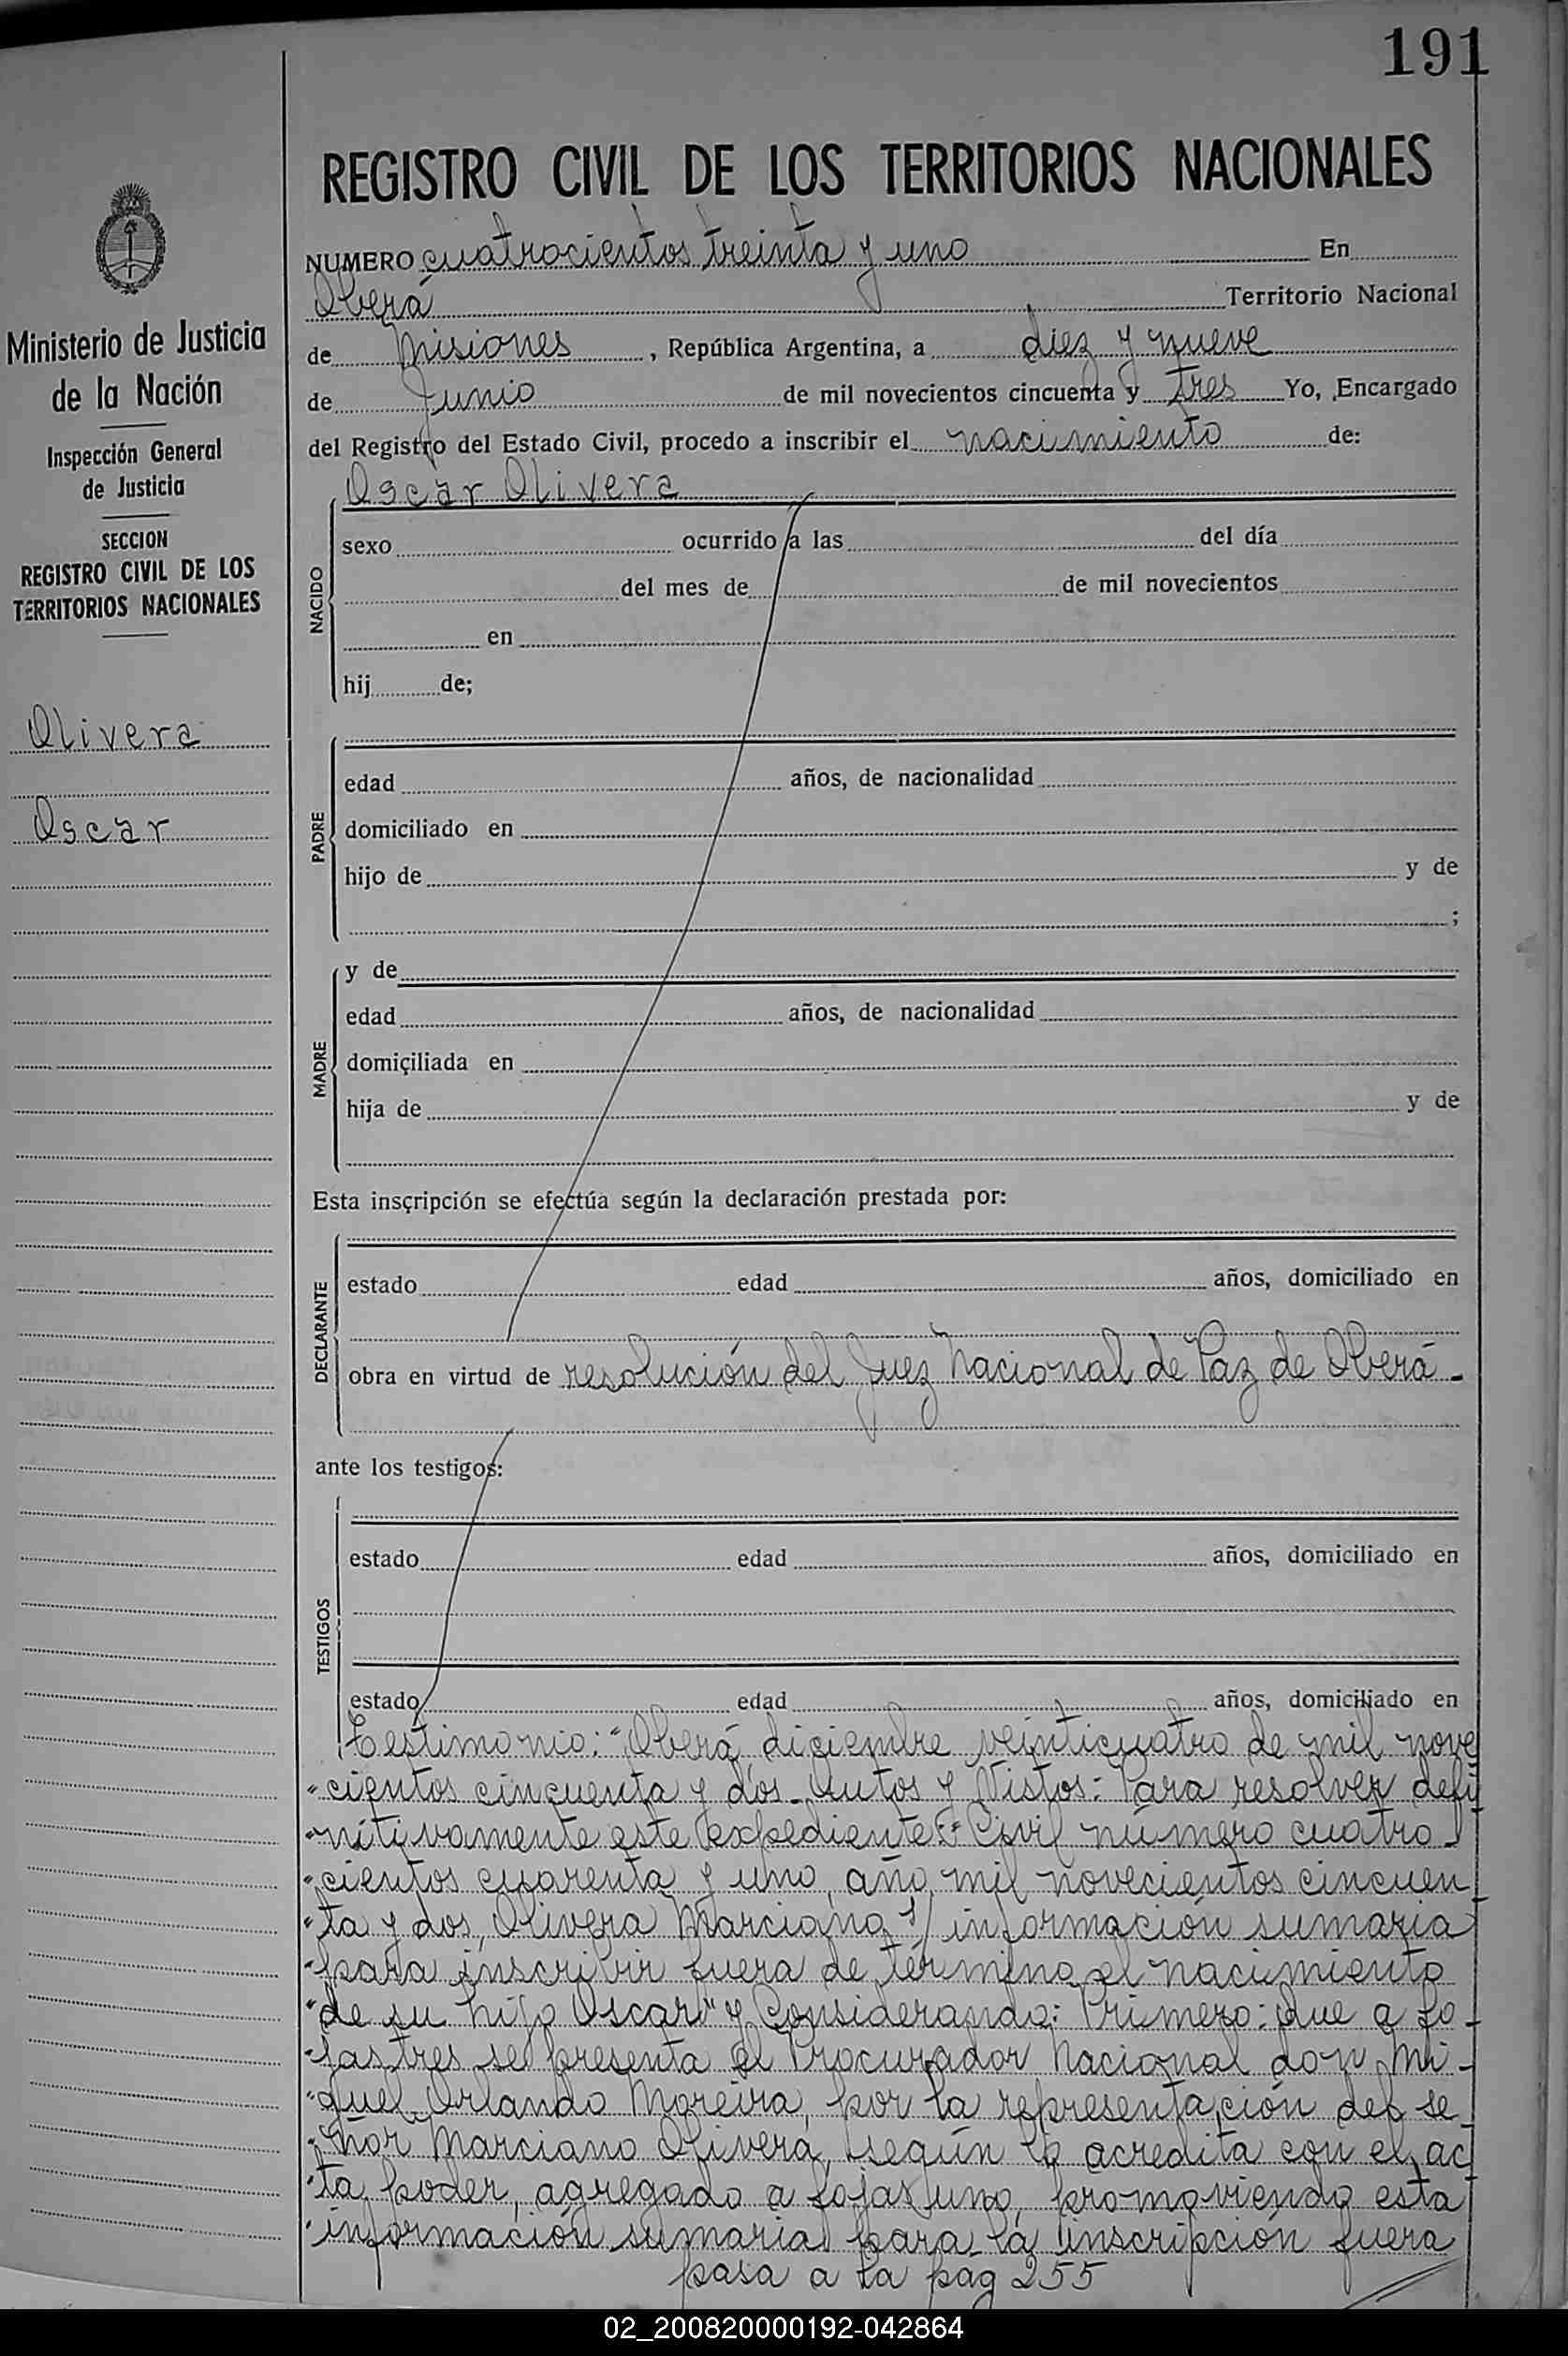 191
REGISTRO CIVIL DE LOS TERRITORIOS NACIONALES
NUMERO cuatrocientos treinta y uno En
Oberá Territorio Nacional
de Misiones, República Argentina, a diez y nueve
de Junio de mil novecientos cincuenta y tres Yo, Encargado
del Registro del Estado Civil, procedo a inscribir el nacimiento de:
Oscar Olivera
NACIDO
sexo ocurrido a las del día
del mes de de mil novecientos
en
hij de;
PADRE
edad años, de nacionalidad
domiciliado en
hijo de y de
;
MADRE
y de
edad años, de nacionalidad
domiciliada en
hija de y de
Esta inscripción se efectúa según la declaración prestada por:
DECLARANTE
estado edad años, domiciliado en
obra en virtud de resolución del Juez Nacional de Paz de Oberá-
ante los testigos:
TESTIGOS
estado edad años, domiciliado en
estado edad años, domiciliado en
Testimonio: "Oberá, diciembre veinticuatro de mil nove
"cientos cincuenta y dos. Autos y Vistos: Para resolver defi
"nitivamente este expediente: "Civil número cuatro-
"cientos cuarenta y uno, año mil novecientos cincuen
"ta y dos, Olivera Marciano s/ información sumaria
"para inscribir fuera de término el nacimiento
"de su hijo Oscar" y Considerando: Primero: Que a fo-
"jas tres se presenta el Procurador Nacional don Mi-
"guel Orlando Moreira, por la representación del se-
"ñor Marciano Olivera, según lo acredita con el ac
"ta poder, agregado a fojas uno, promoviendo esta
"información sumaria para la inscripción fuera
pasa a la pag 255
Ministerio de Justicia
de la Nación
Inspección General
de Justicia
SECCION
REGISTRO CIVIL DE LOS
TERRITORIOS NACIONALES
Olivera
Oscar
02_200820000192-042864